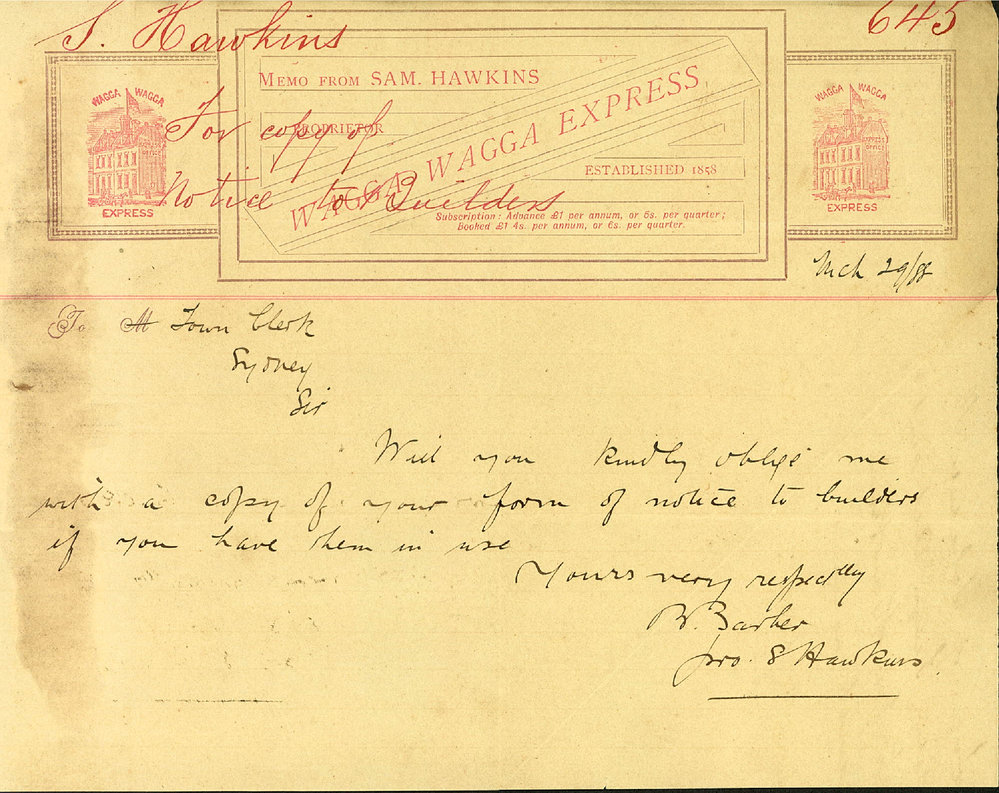 S. Hawkins
645
For copy of
Notice to Builders
MEMO FROM SAM. HAWKINS
PROPRIETOR
WAGGA WAGGA EXPRESS
ESTABLISHED 1858
Subscription: Advance £1 per annum, or 5s. per quarter;
Booked £1 4s. per annum, or 6s. per quarter.
WAGGA WAGGA
EXPRESS OFFICE
EXPRESS
WAGGA WAGGA
EXPRESS OFFICE
EXPRESS
Mch 29/88
To M Town Clerk
Sydney
Sir
Will you kindly oblige me
with a copy of your form of notice to builders
if you have them in use
Yours very respectlly
B. Barber
pro. S Hawkins.